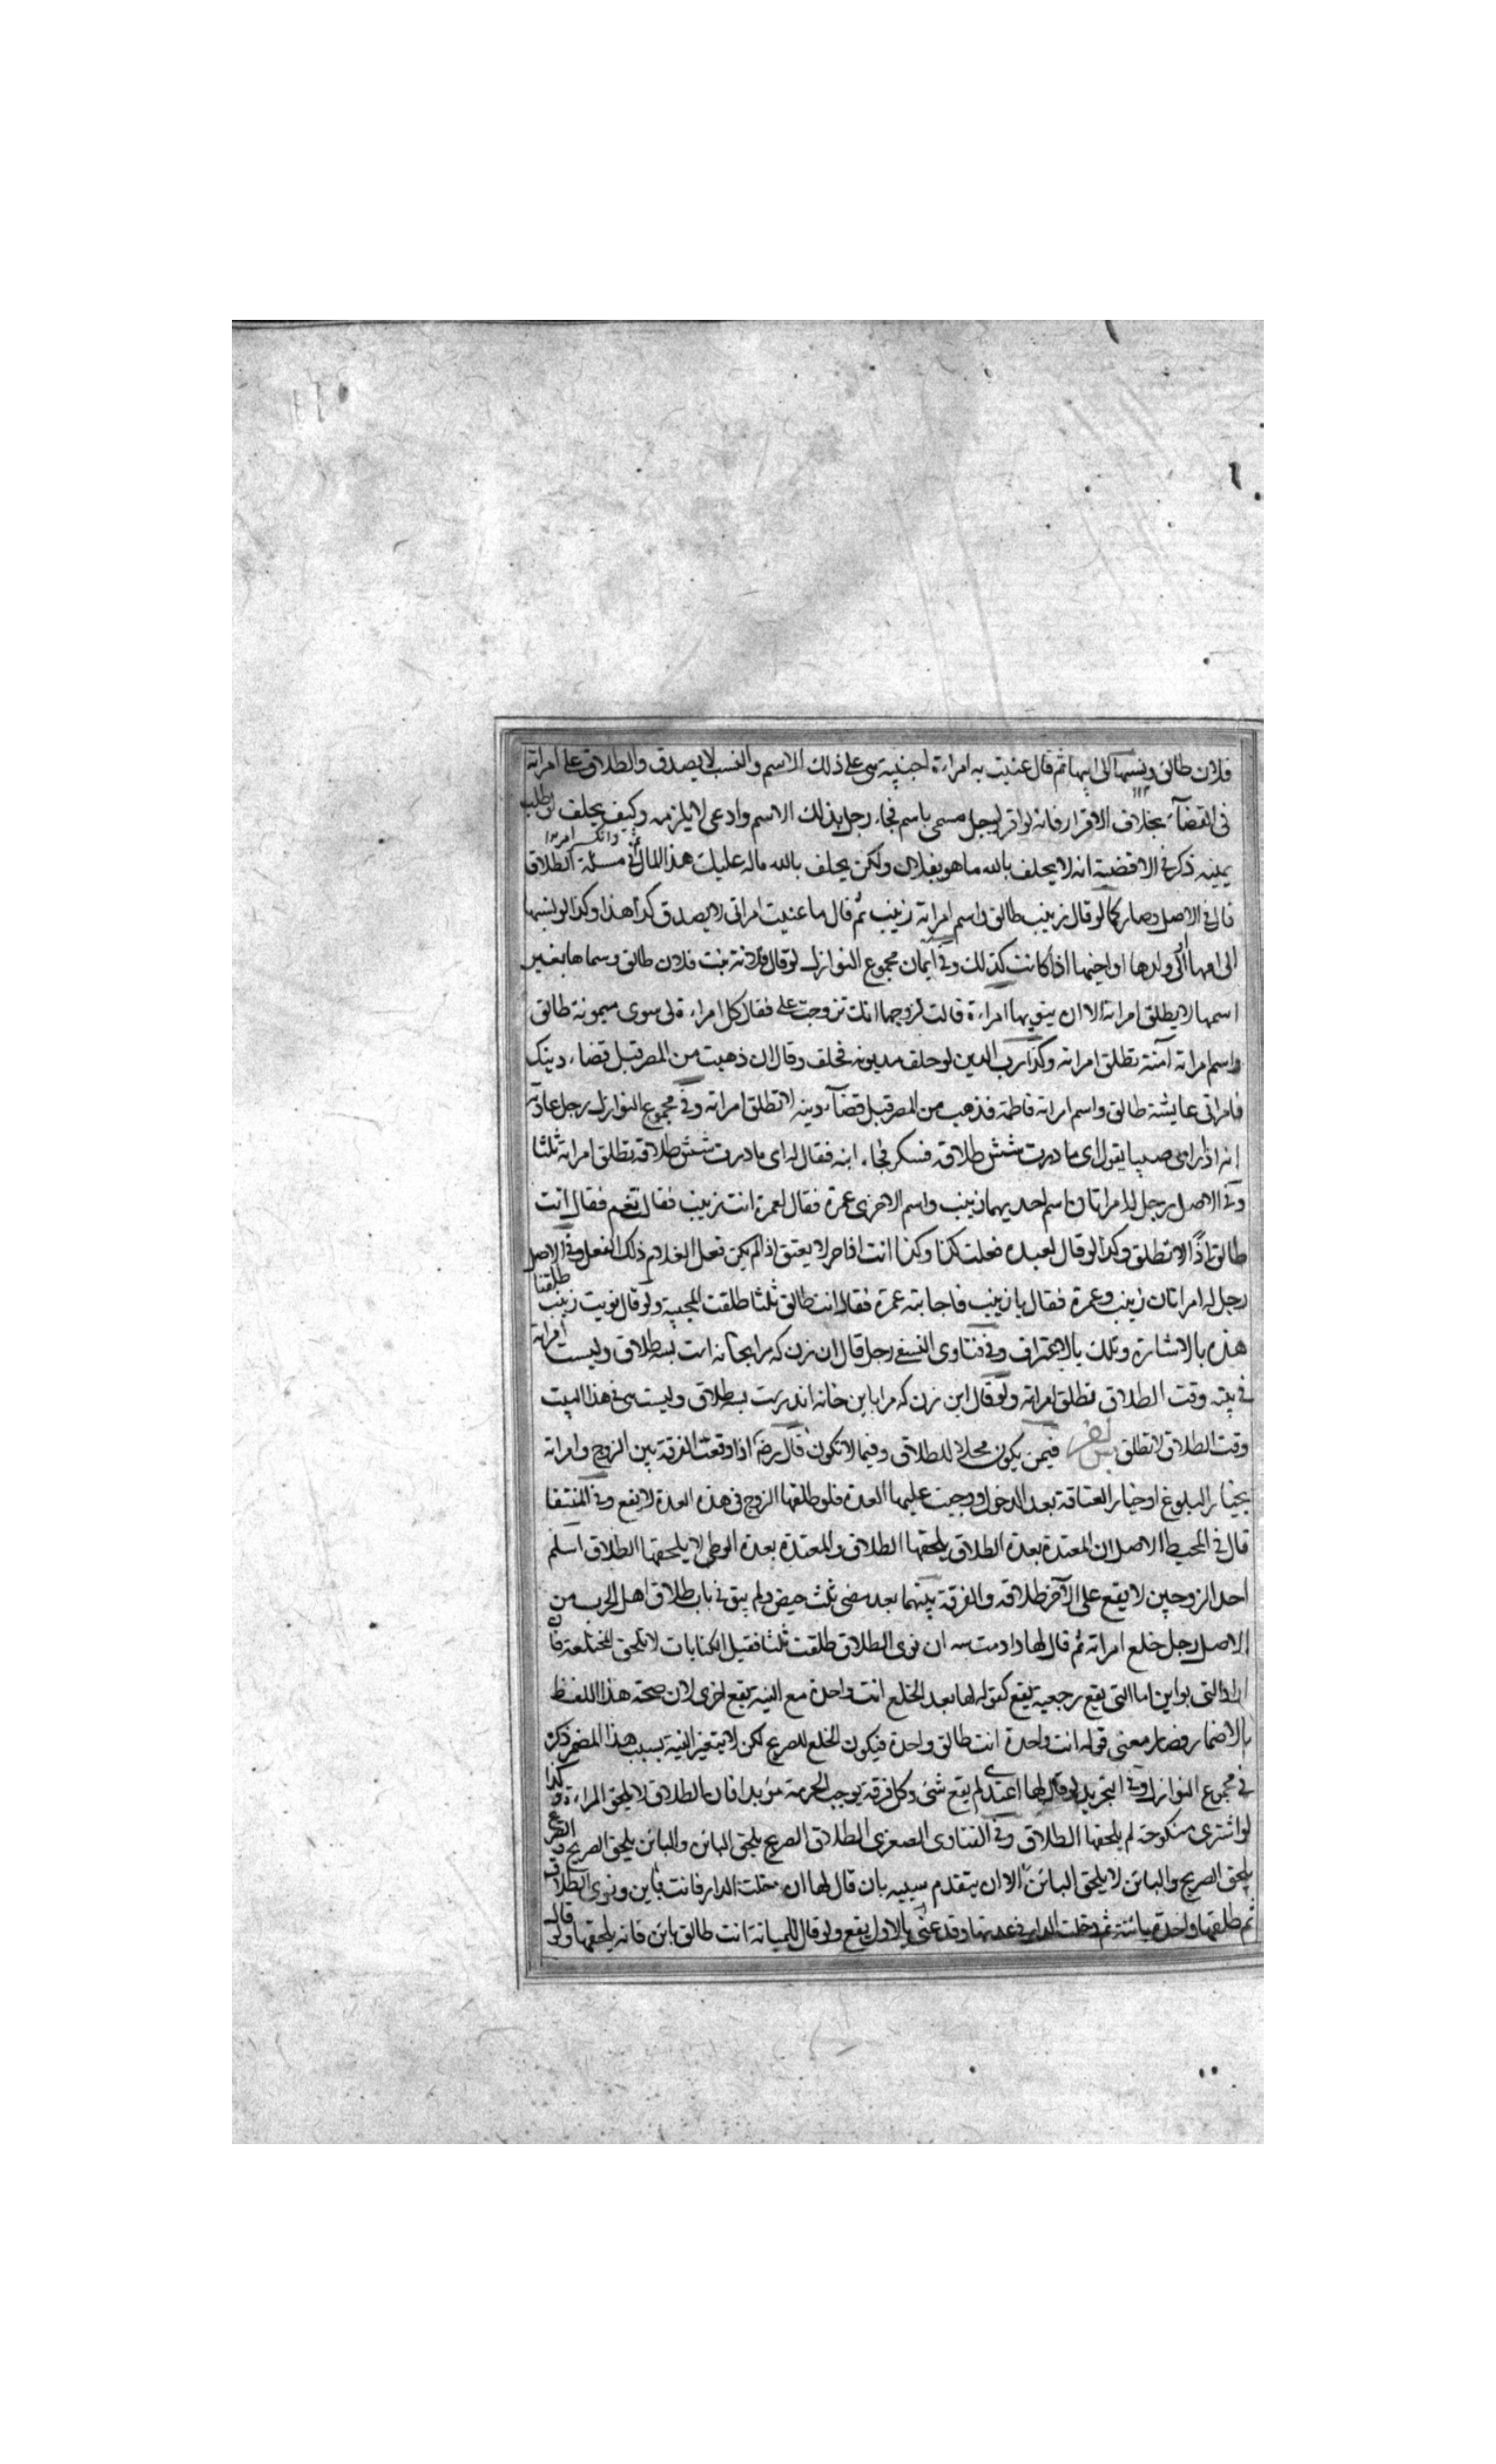 فلان طالق ونسبها الى ابيها ثم قال عنيت به امراءة اجنبية سمى على ذلك الاسم والنسب لا يصدق والطلاق على امراته
فى القضآء بخلاف الاقرار فانه لو اقر لرجل مسمى باسم فجاء رجل بذلك الاسم وادعى لا يلزمه وكيف يحلف لو طلب
يمينه ذكر فى الاقضية انه لا يحلف بالله ما هو بفلان ولكن يحلف بالله ماله عليك هذا المال فى مسئلة الطلاق
قال فى الاصل وصار كما لو قال زينب طالق واسم امراته زينب ثم قال ما عنيت امراتى لا يصدق كذا هذا وكذا لو نسبها
الى امها او الى ولدها او اختها اذا كانت كذلك وفى ايمان مجموع النوازل لو قال فلانة بنت فلان طالق وسماها بغير
اسمها لا يطلق امراته الا ان ينوى بها امراءة قالت لزوجها انك تزوجت على فقال كل امراءة لى سوى ميمونة طالق
واسم امراته آمنة تطلق امراته وكذا رب الدين لو حلف مديونه فحلف وقال ان ذهبت من المصر قبل قضاء دينك
فامراتى عايشة طالق واسم امراته فاطمة فذهب من المصر قبل قضآء دينه لا تطلق امراته وفى مجموع النوازل رجل عادته
انه اذا راى صبيا يقول اى مادرت شش طلاقه فسكر فجاء ابنه فقال له اى مادرت شش طلاقه تطلق امراته ثلثا
وفى الاصل رجل له امراتان اسم احديهما زينب واسم الاخرى عمرة فقال لعمرة انت زينب فقالت نعم فقال انت
طالق اذًا لا تطلق وكذا لو قال لعبده فعلت كذا وكذا انت اذا حر لا يعتق اذا لم يكن فعل الغلام ذلك الفعل وفى الاصل
رجل له امراتان زينب وعمرة فقال يا زينب فاجابته عمرة فقال انت طالق ثلثا طلقت المجيبة ولو قال نويت زينب طلقتا
هذه بالاشارة وتلك بالاعتراف وفى فتاوى النسفى رجل قال ان زن كه مرا بخانه است بسه طلاق وليست امراته
فى بيته وقت الطلاق تطلق امراته ولو قال اين زن كه مرا باين خانه اندرست بسه طلاق وليست هى فى هذا البيت
وقت الطلاق لا تطلق فيمن يكون محلا للطلاق وفيما لا تكون قال رضه اذا وقعت الفرقة بين الزوج وامراته
بخيار البلوغ او خيار العتاقة بعد الدخول ووجبت عليها العدة فلو طلقها الزوج فى هذه العدة لا يقع وفى المنتقا
قال فى المحيط الاصل ان المعتدة بعدة الطلاق يلحقها الطلاق والمعتدة بعدة الوطى لا يلحقها الطلاق اسلم
احد الزوجين لا يقع على الآخر طلاقه والفرقة بينهما بعد مضى ثلث حيض ولم يبق فى باب طلاق اهل الحرب من
الاصل رجل خلع امراته ثم قال لها دادمت سه ان نوى الطلاق طلقت ثلثا فقيل الكنايات لا تلحق المختلعة قال
اراد التى بواين اما التى يقع رجعية يقع كقوله لها بعد الخلع انت واحدة مع النية يقع اخرى لان صحة هذا اللفظ
بالاضمار فصار معنى قوله انت واحدة انت طالق واحدة فيكون الخلع للصريح لكن لا يتغير النية بسبب هذا المضمر ذكره
فى مجموع النوازل وفى التجريد لو قال لها اعتدى لم يقع شئ وكل فرقة يوجب الحرمة مؤبدا فان الطلاق لا يلحق المراءة وكذا
لو اشترى منكوحته لم يلحقها الطلاق وفى الفتاوى الصغرى الطلاق الصريح يلحق البائن والبائن يلحق الصريح والصريح
يلحق الصريح والبائن لا يلحق البائن الا ان يتقدم سببه بان قال لها ان دخلت الدار فانت بأين ونوى الطلاق
ثم طلقها واحدة بائنة ثم دخلت الدار فى عدتها وقد عنى بالاول يقع ولو قال للمبانة انت طالق بائن فانه يلحقها ولو قال